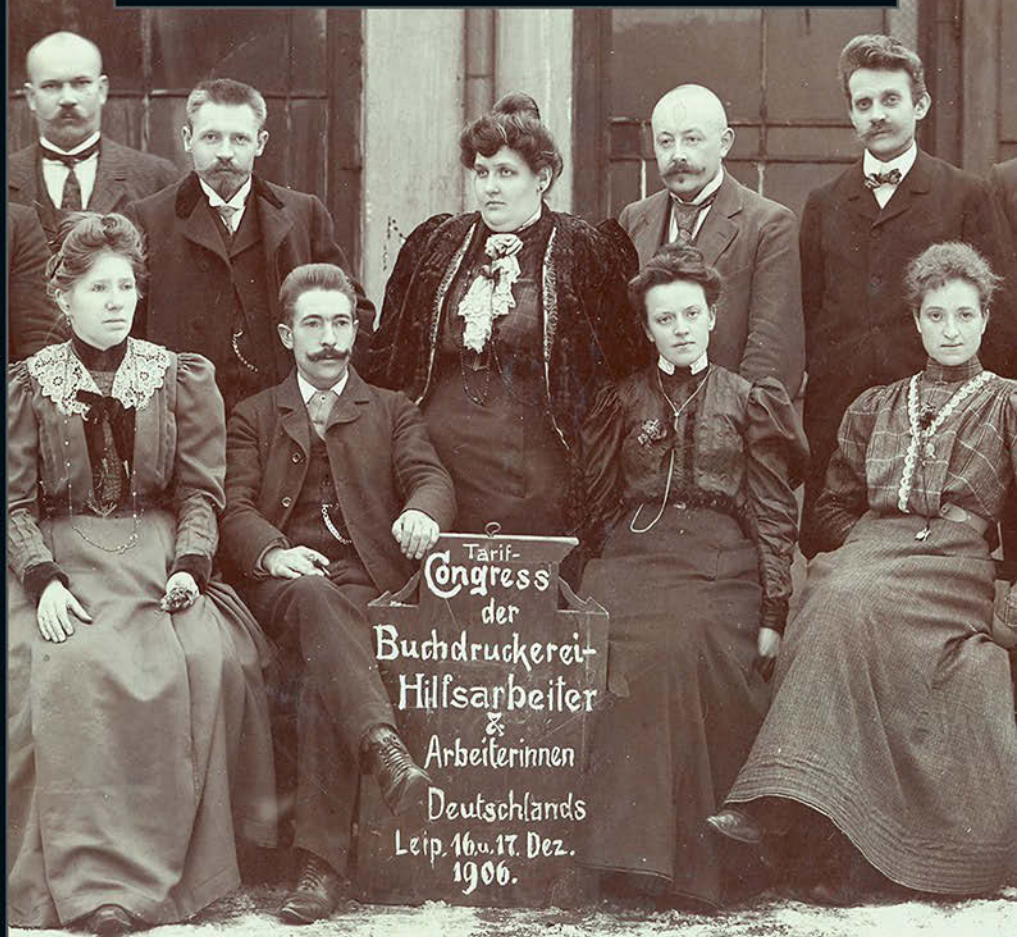 Tarif-
Congress
der
Buchdruckerei-
Hilfsarbeiter
&
Arbeiterinnen
Deutschlands
Leip. 16u. 17. Dez.
1906.